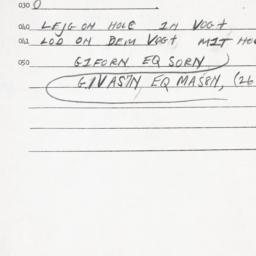 030 O
040 LEJG ON HOLE IN VOGT
042 LOD ON DEM VOGT MIT HO
050 GIFORN EQ SORN
GIVASIN EQ MASON, (26